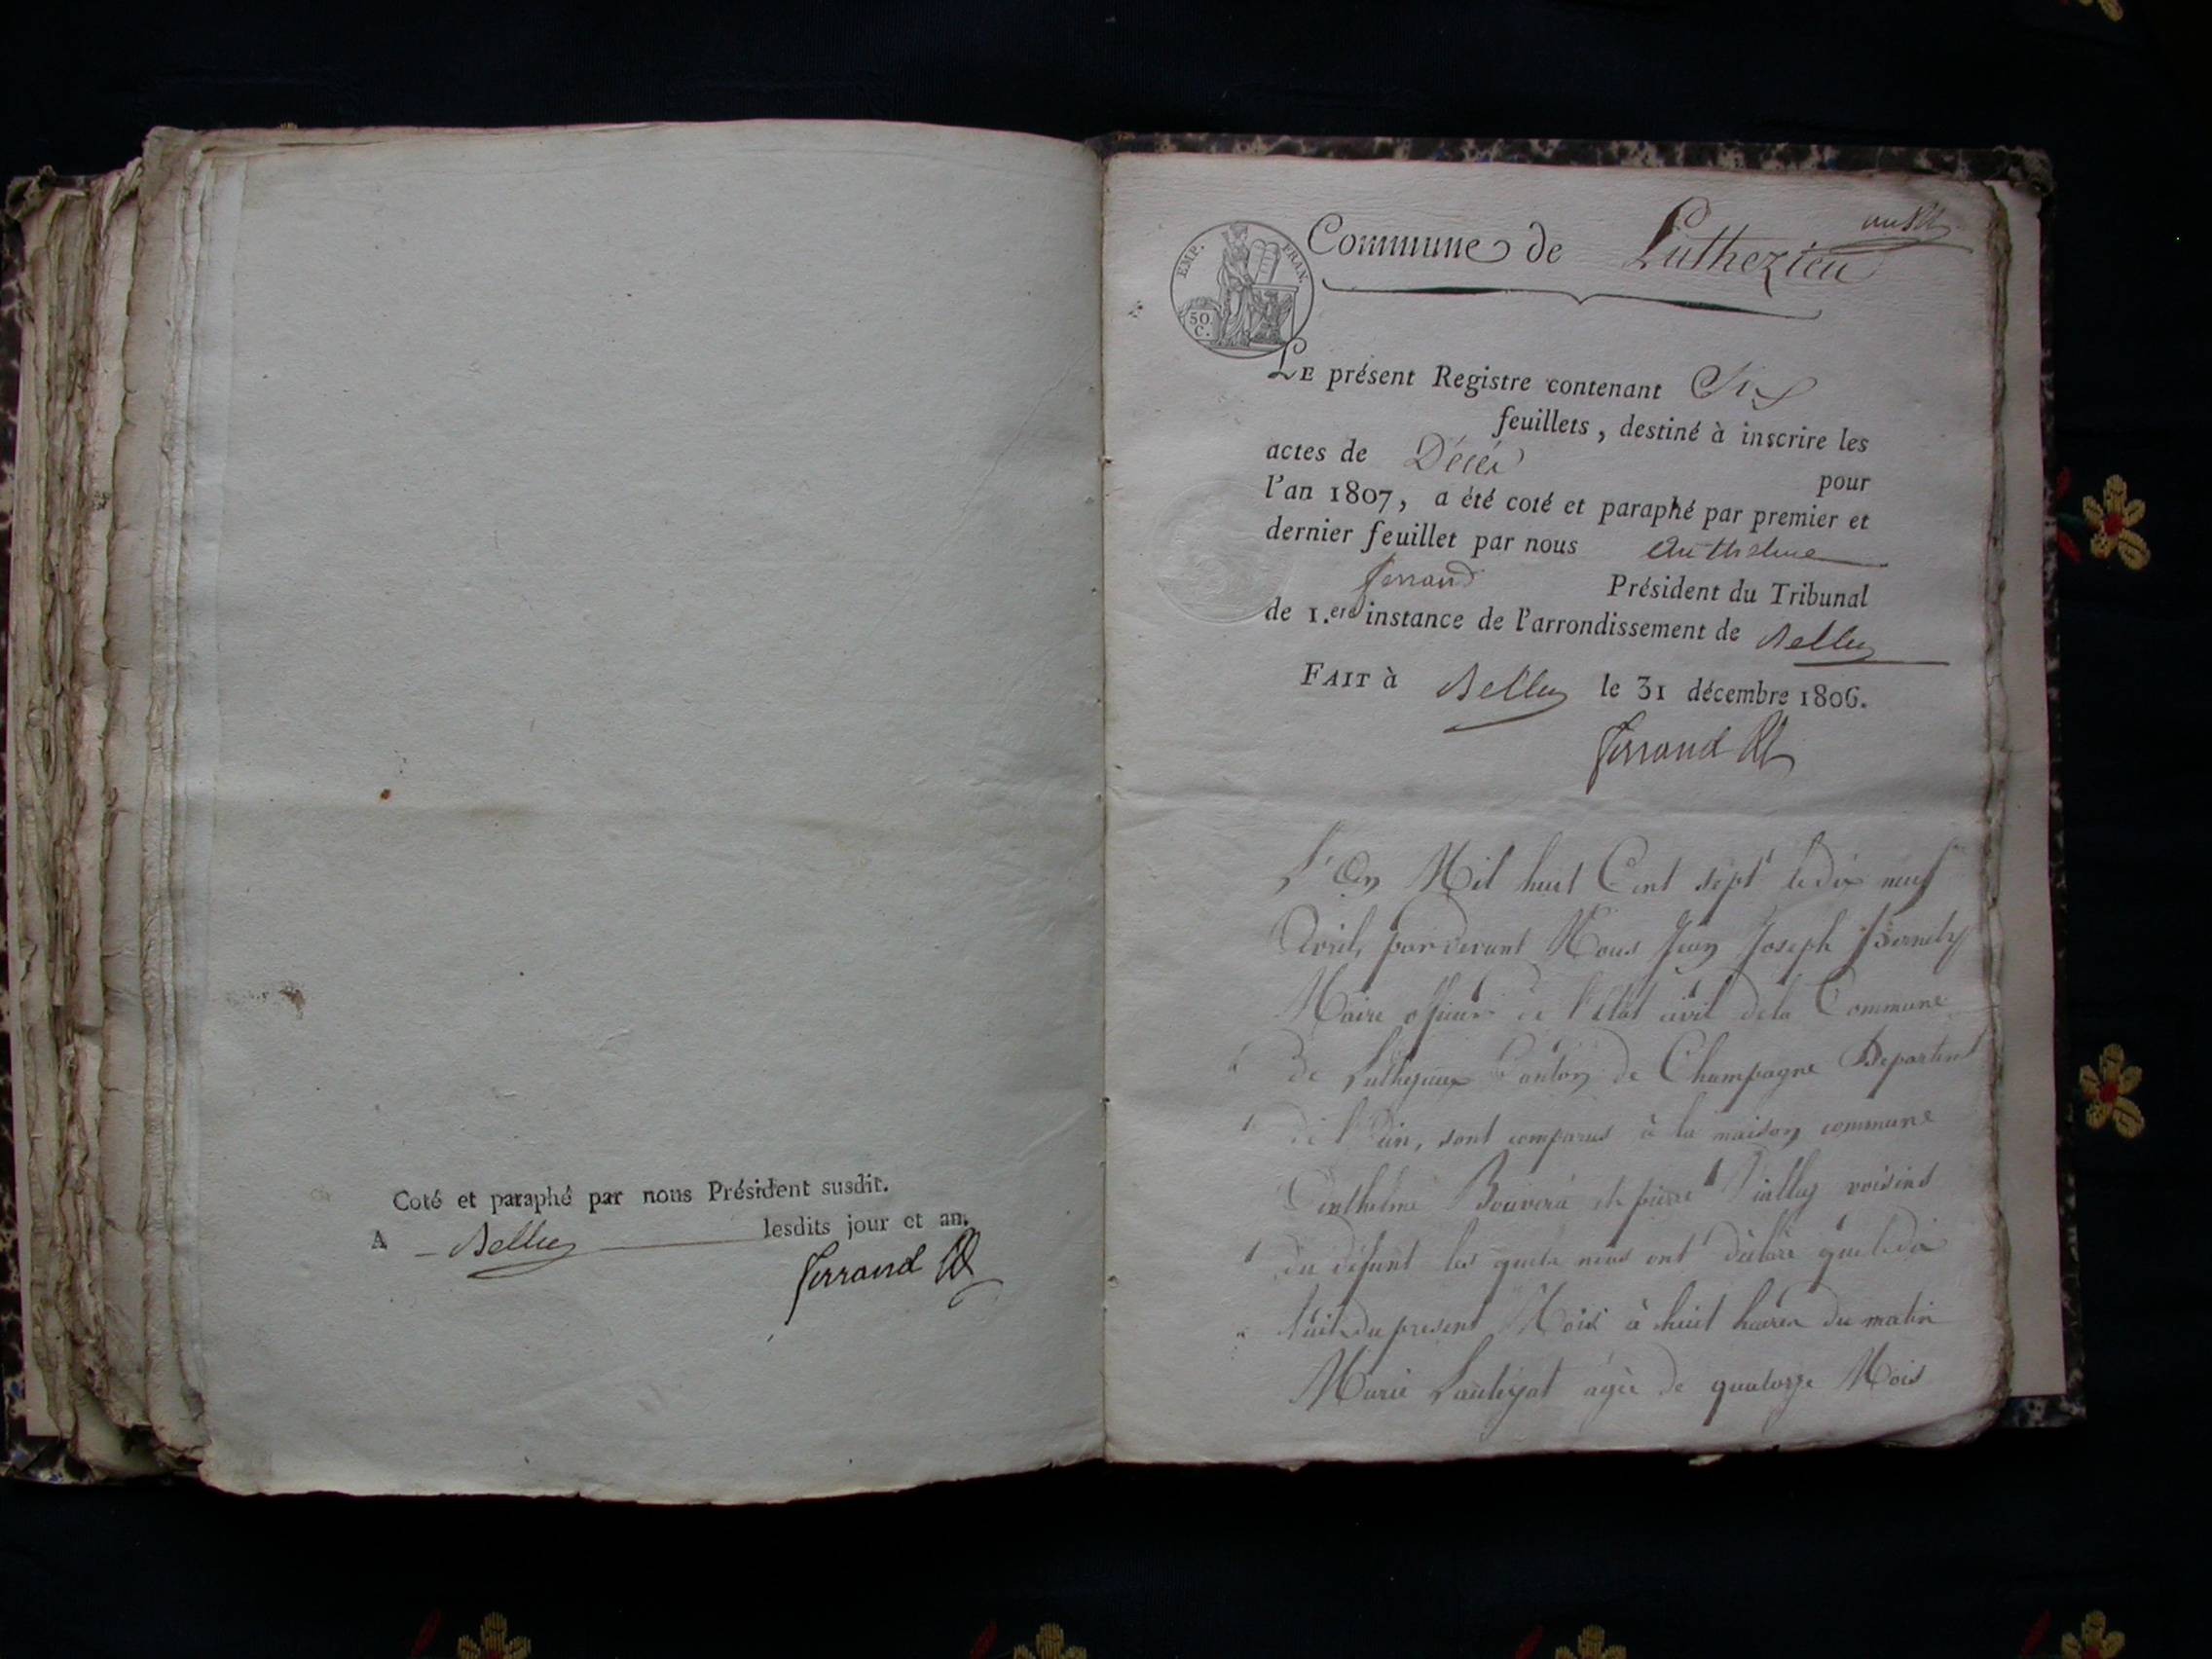 Coté et paraphé par nous Président susdit.
A Belley lesdits jour et an.
Ferrand
an 1807
Commune de Luthezieu
EMP. FRAN.
50 C.
LE présent Registre contenant Six
feuillets, destiné à inscrire les
actes de Décés pour
l'an 1807, a été coté et paraphé par premier et
dernier feuillet par nous Anthelme
Ferrand Président du Tribunal
de 1.ere instance de l'arrondissement de Belley
FAIT à Belley le 31 décembre 1806.
Ferrand
L'an Mil huit Cent sept le dix neuf
Avril, pardevant Nous Jean Joseph
Maire officier de l'état civil de la Commune
de Luthezieux Canton de Champagne Departent
de l'ain, sont comparus à la maison commune
Anthelme Bouvera et pierre voisins
du défunt les quels nous ont déclaré que le dix
huit du present Mois à huit heures du matin
Marie agée de quatorze Mois